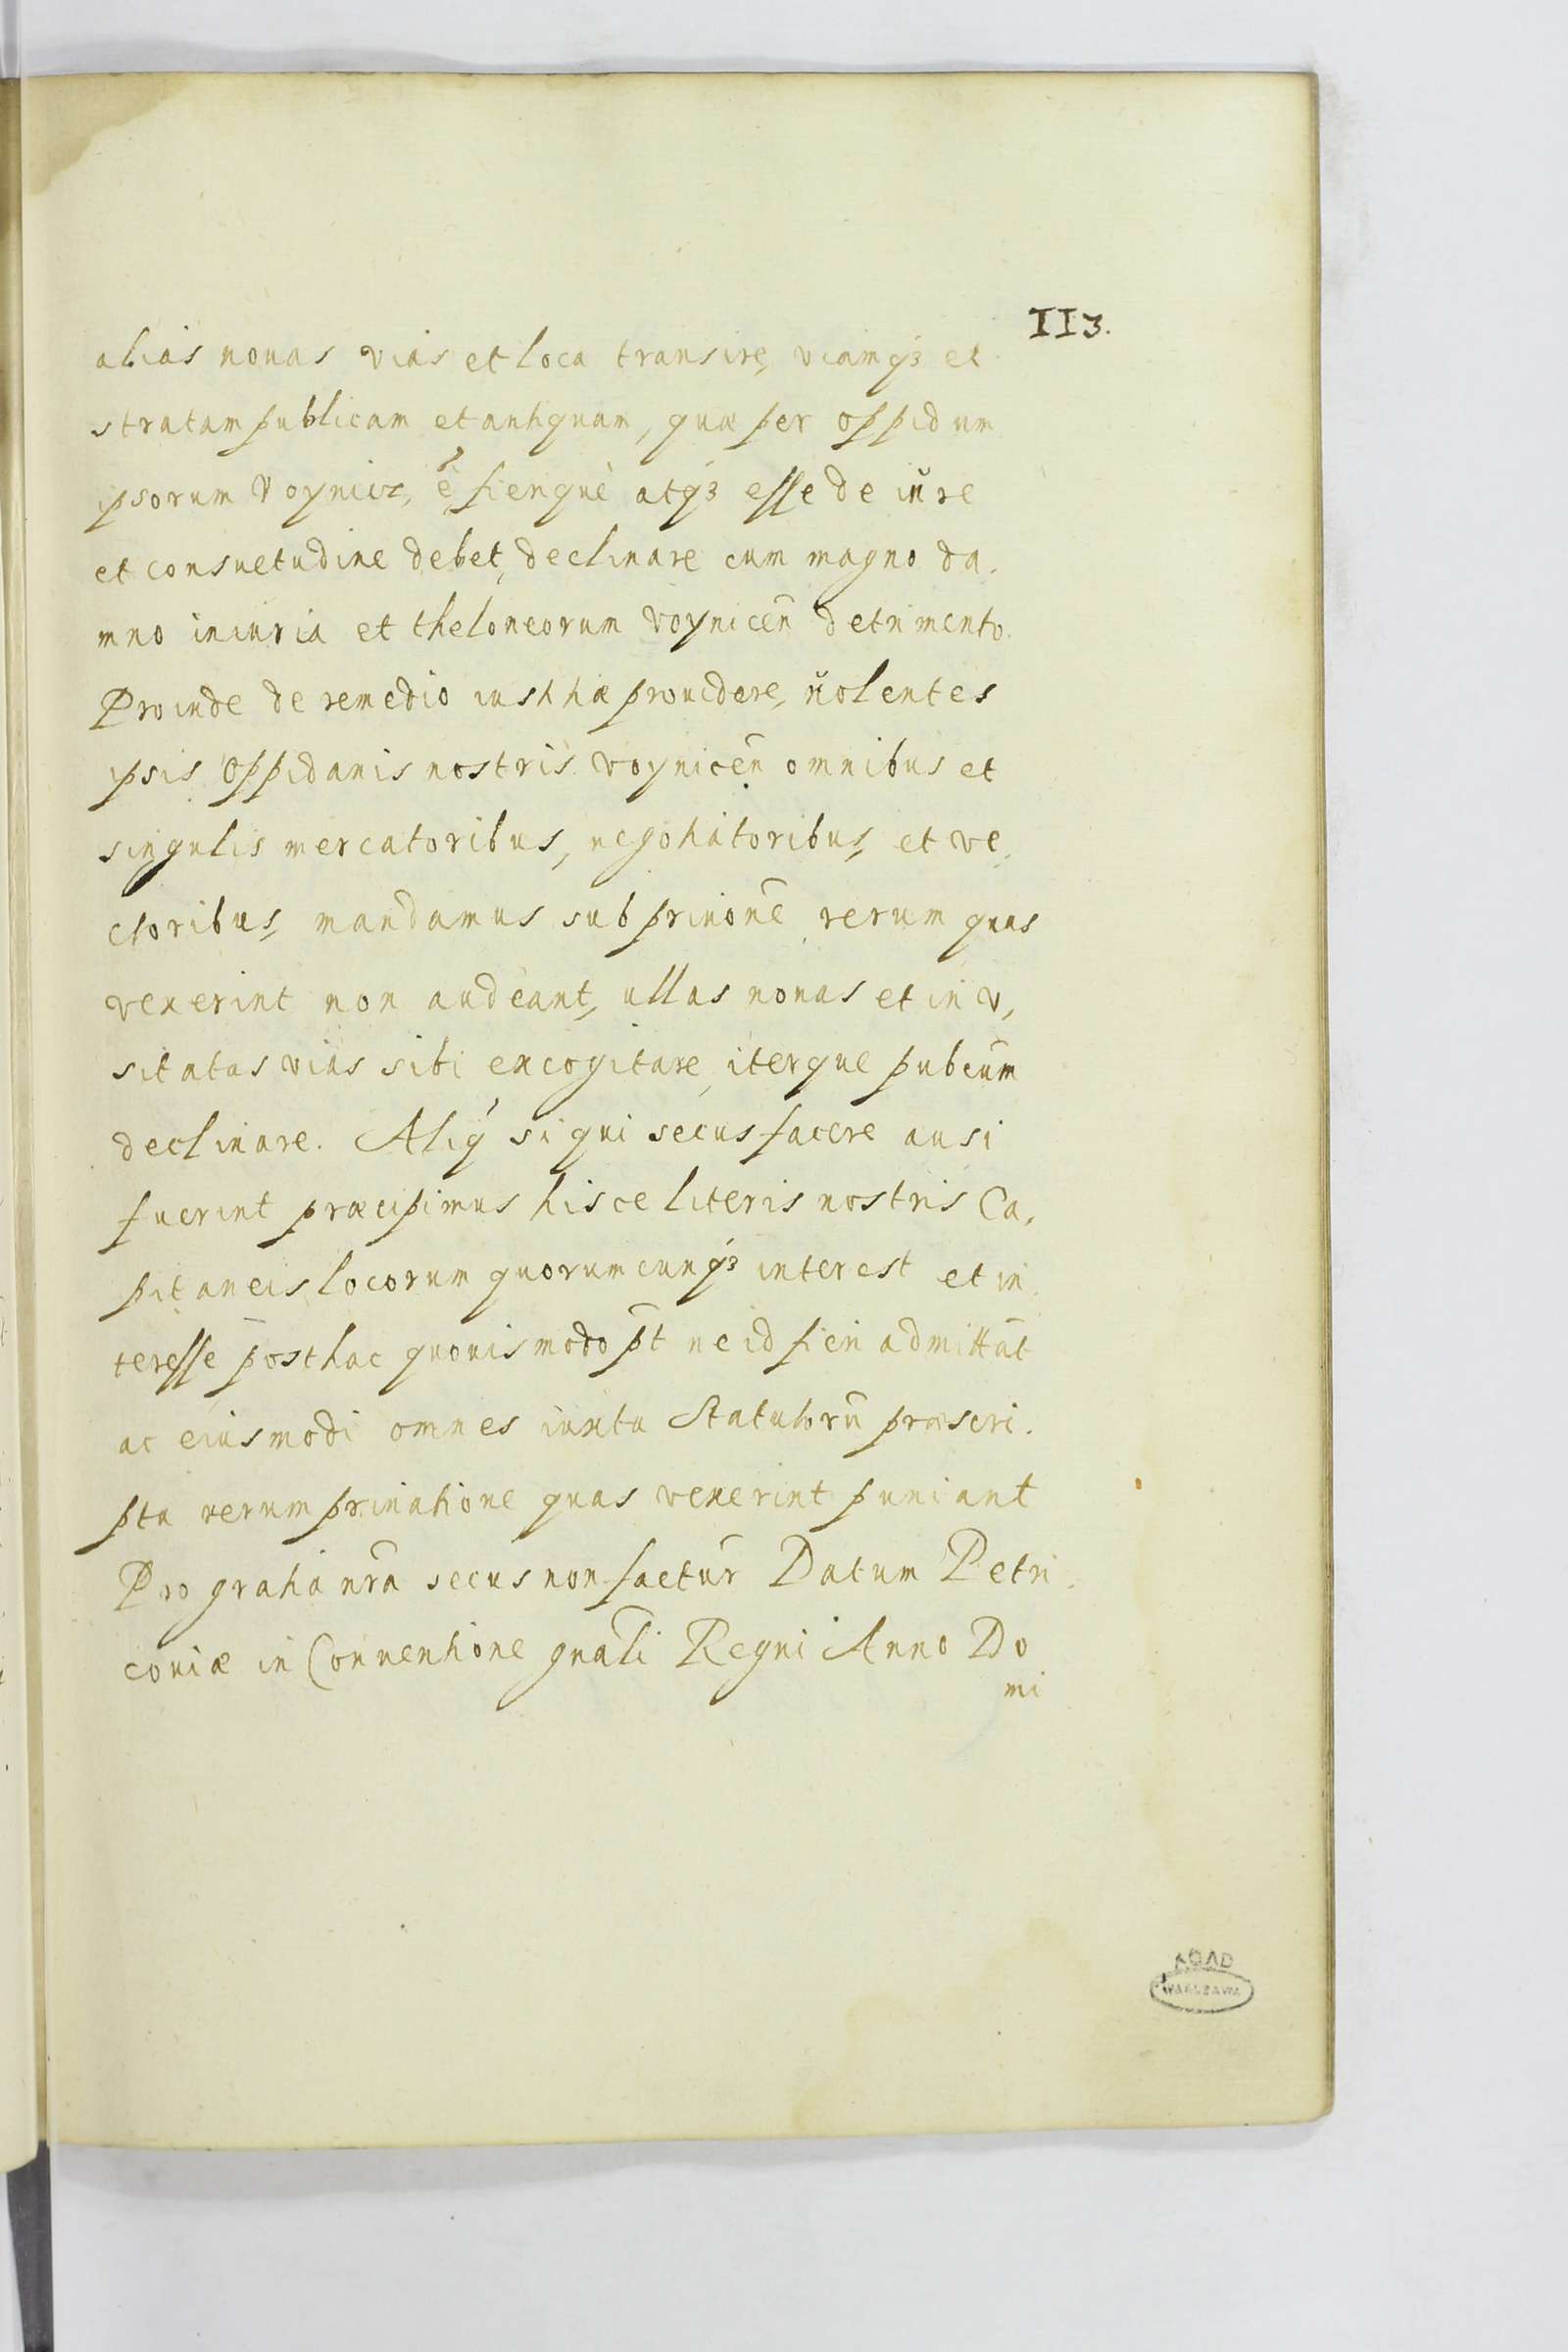 113.
alias nouas vias et loca transire, viamq3 et
stratam publicam et antiquam, quæ per oppidum
ipsorum Voynicz, ẽ fierique atq3 esse de iure
et consuetudine debet, declinare cum magno da,
mno iniuria et theloneorum Voynicen̄ detrimento.
Proinde de remedio iustitiæ prouidere, uolentes
ipsis oppidanis nostris Voynicen̄ omnibus et
singulis mercatoribus, negotiatoribus, et ve,
ctoribus, mandamus sub priuonẽ rerum quas
vexerint non audeant, ullas nouas et inv,
sitatas vias sibi excogitare, iterque pubcũm
declinare. Aliq̃ si qui secus facere ausi
fuerint præcipimus hisce literis nostris Ca,
pitaneis locorum quorumcunq3 interest et in
teresse posthac quouismodo p̃t ne id fieri admittãt
ac eiusmodi omnes iuxta Statutorũ præscri,
pta rerum priuatione quas vexerint puniant
Pro gratia nr̃a secus non factur̃ Datum Petri,
couiæ in Conuentione gnãli Regni Anno Do
mi
AGAD
WARSZAWA